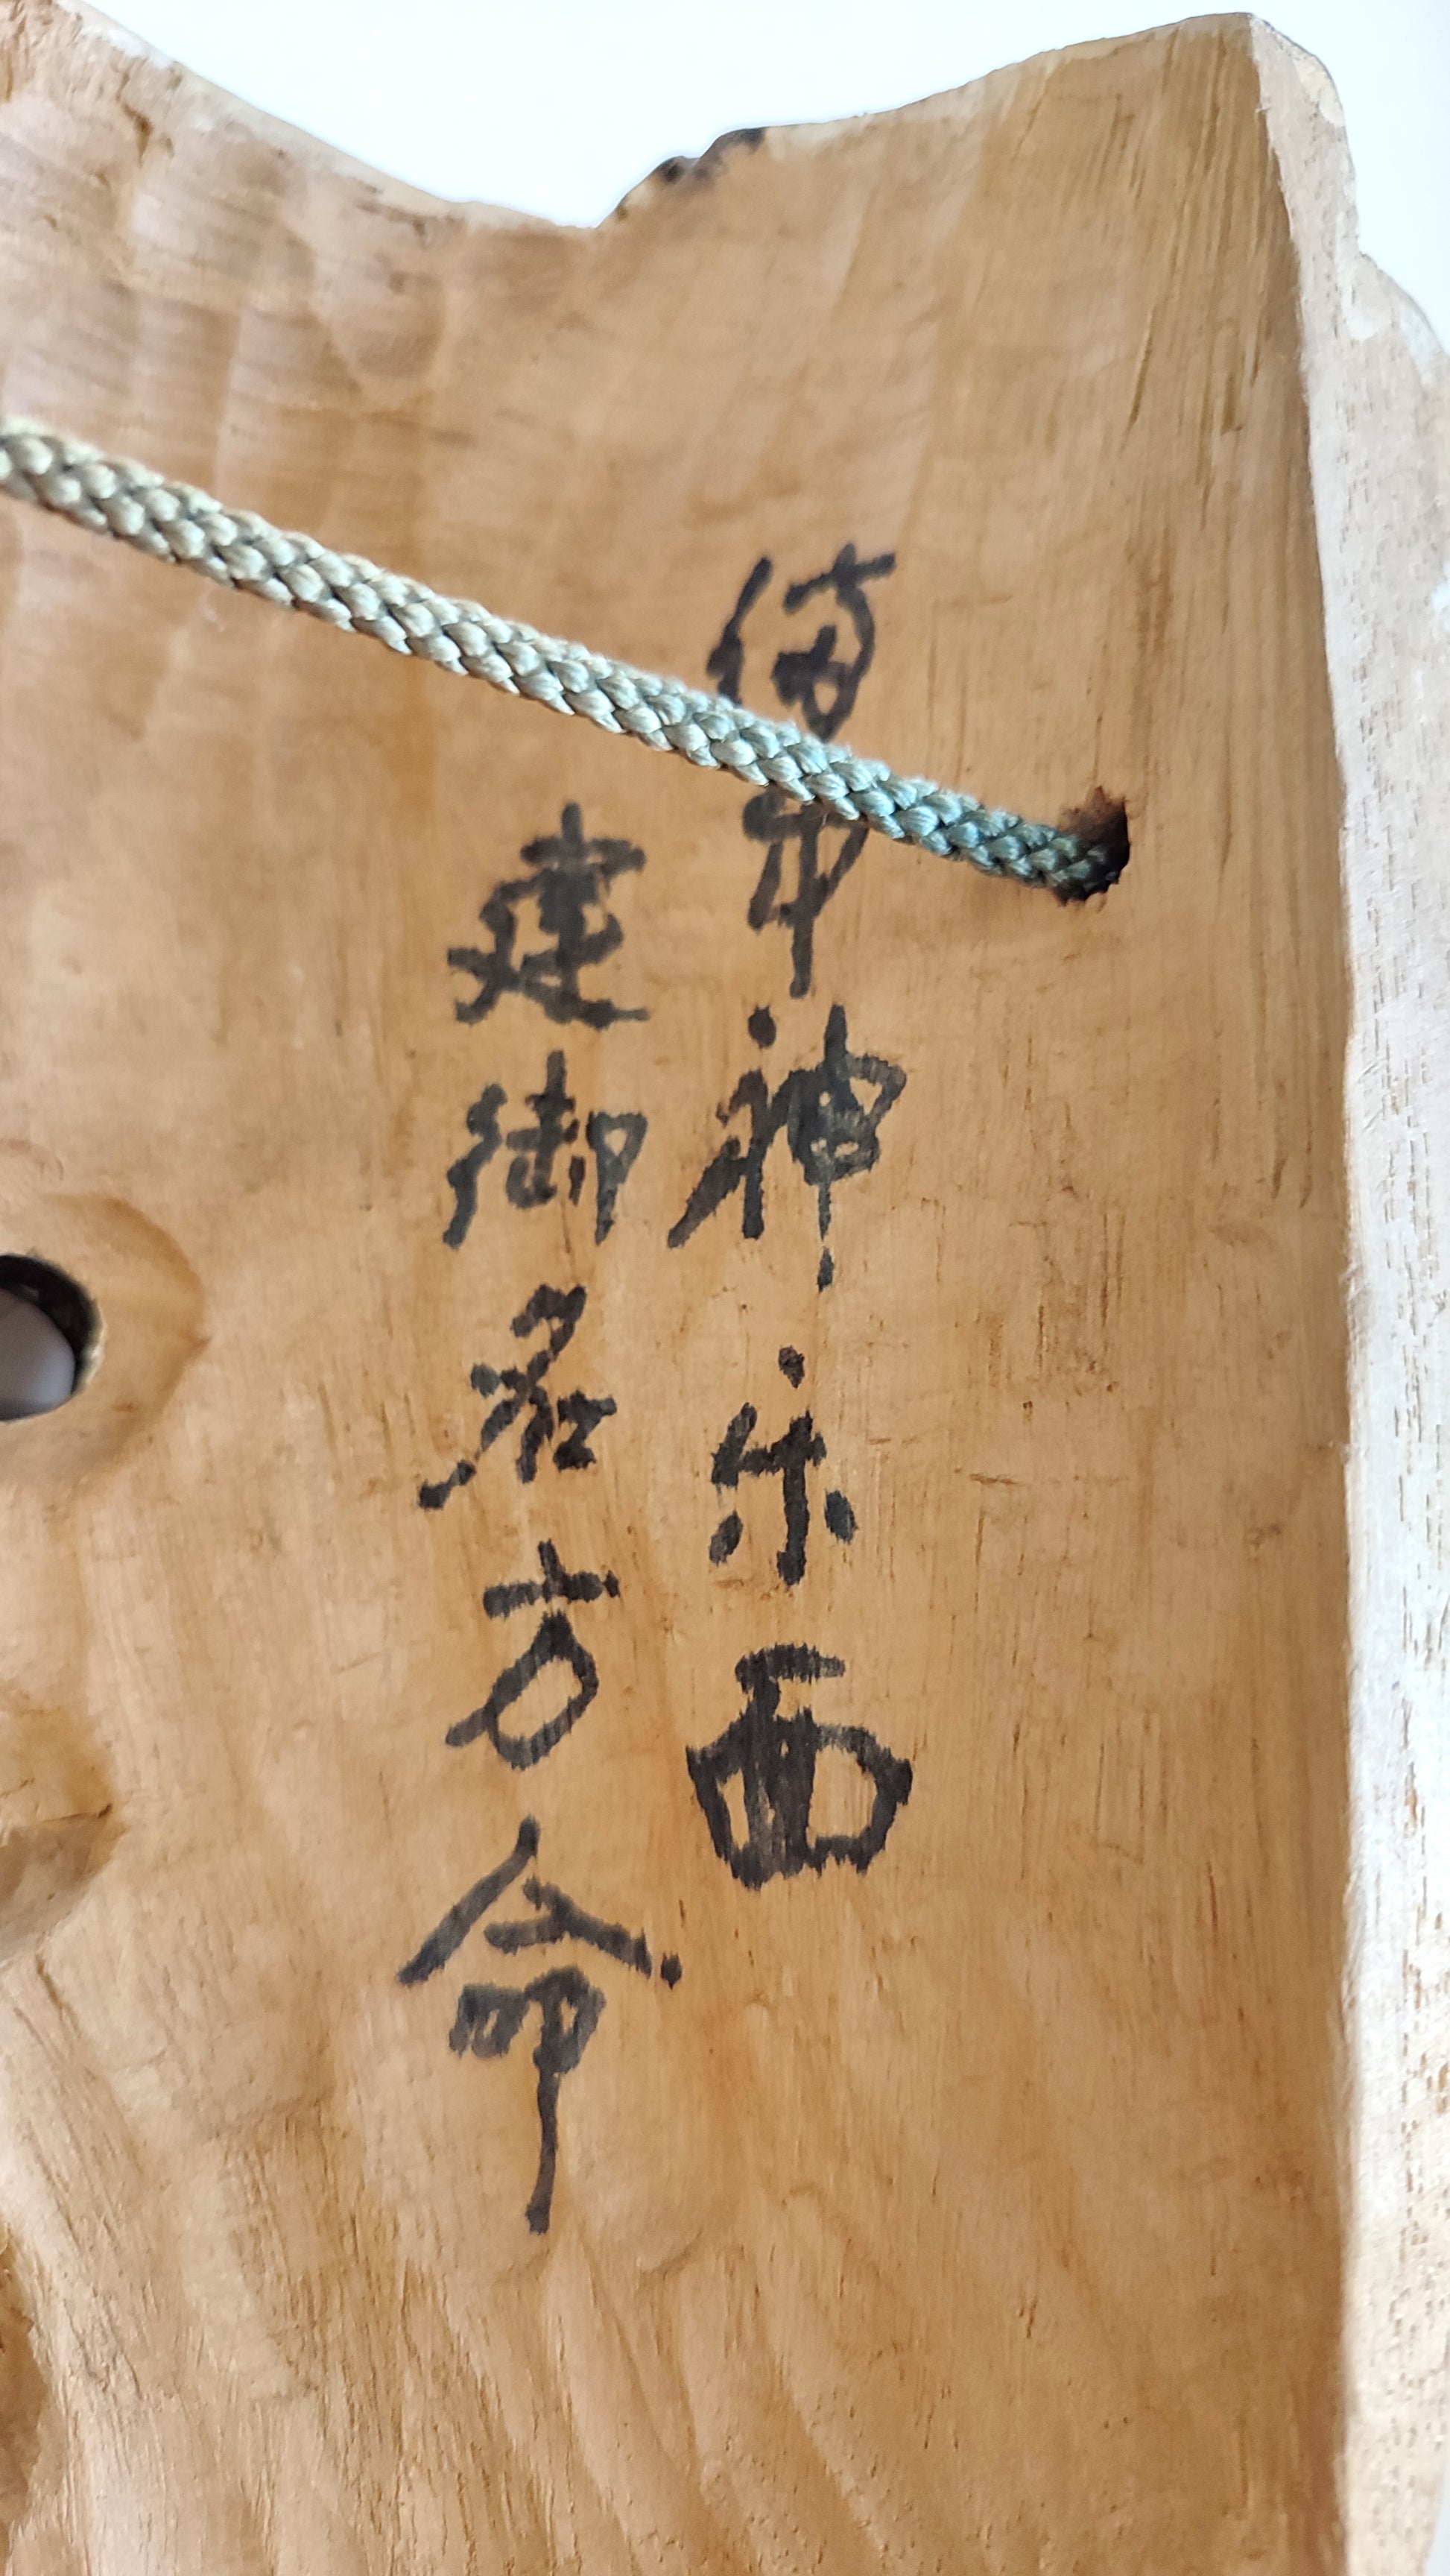 備中神乐面
建御名方命